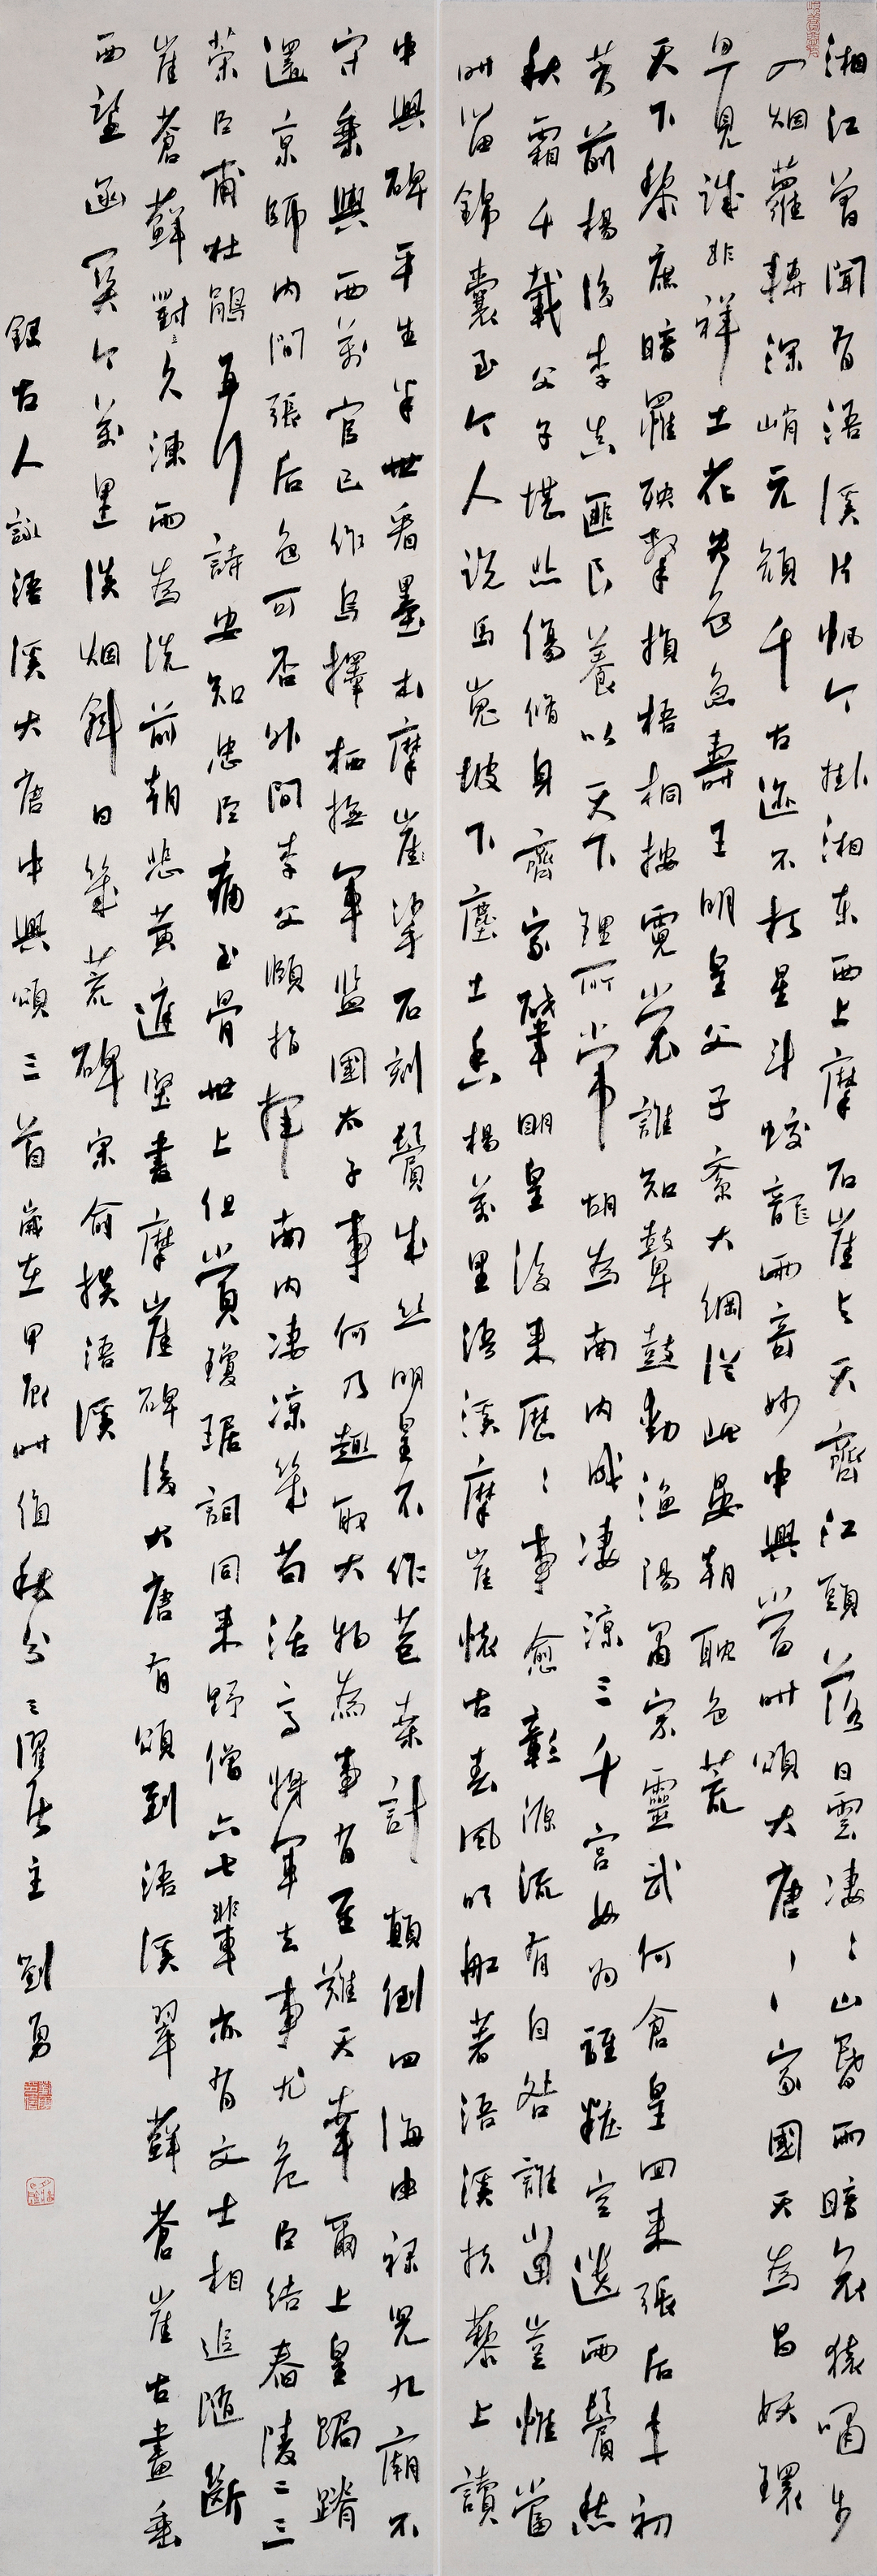 湘江曾聞有浯溪片帆今掛湘東西上摩石崖與天齊江頭落日雲凄〻山昏雨暗哀猿啼步
入烟蘿轉深峭元顏千古迹不朽星斗蛟龍兩奇妙中興當時頌大唐〻〻家國天為昌妖環
早見誠非祥土花失色為壽王明皇父子紊大綱從此晏朝耽色荒
天下黎庶暗罹殃擊損梧桐按霓裳誰知鼙鼓動漁陽肅宗靈武何倉皇回來張后年初
芳前楊後李真匪良養以天下理所常胡為南內成凄涼三千宮女為誰粧空遺兩鬢愁
秋霜千載父子堪悲傷修身齊家肇明皇後來歷〻事愈彰源流有自咎誰當豈惟當
時留錦囊至今人說馬嵬坡下塵土香楊萬里浯溪摩崖懷古春風吹船著浯溪扶藜上讀
中興碑平生半世看墨本摩崖石刻鬢成絲明皇不作苞桑計顛倒四海由祿兒九廟不
守乘輿西萬官已作烏擇栖撫軍監國太子事何乃趣取大物為事有至難天幸爾上皇跼蹐
還京師內間張后色可否外間李父頤指揮南內凄涼幾苟活高將軍去事尤危臣結舂陵二三
策臣甫杜鵑再拜詩安知忠臣痛至骨世上但賞瓊琚詞同來野僧六七輩亦有文士相追隨斷
崖蒼蘚對〻久凍雨為洗前朝悲黃庭堅書摩崖碑後大唐有頌刻浯溪翠蘚蒼崖古畫垂
西望函關今萬里淡烟斜日幾荒碑宋俞掞浯溪
錄古人詠浯溪大唐中興頌三首歲在甲辰時值秋分三濯居主劉勇